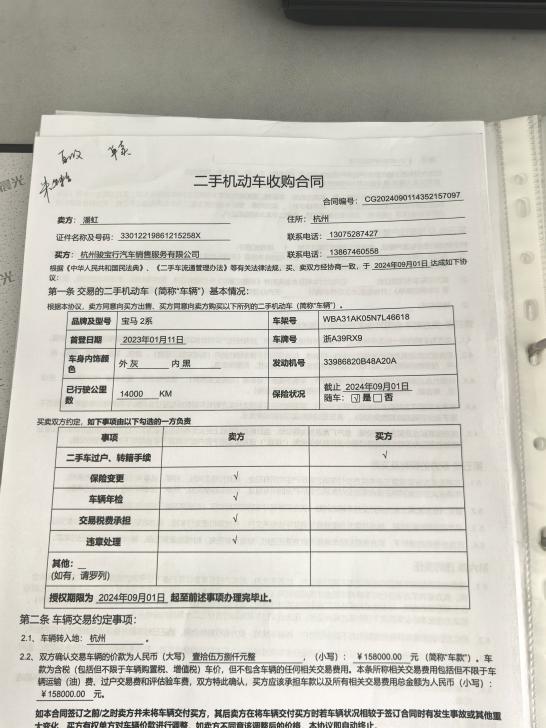 二手机动车收购合同
合同编号: CG2024090114352157097
卖方: 潘虹 住所: 杭州
证件名称及号码: 33012219861215258X 联系电话: 13075287427
买方: 杭州骏宝行汽车销售服务有限公司 联系电话: 13867460558
根据《中华人民共和国民法典》、《二手车流通管理办法》等有关法律法规,买、卖双方经协商一致,于 2024年09月01日 达成如下协
议:
第一条 交易的二手机动车(简称“车辆”)基本情况:
根据本协议,卖方同意向买方出售、买方同意向卖方购买以下所列的二手机动车(简称“车辆”)。
品牌及型号 宝马 2系 车架号 WBA31AK05N7L46618
首登日期 2023年01月11日 车牌号 浙A39RX9
车身内饰颜色 外 灰 内 黑 发动机号 33986820B48A20A
已行驶公里数 14000 KM 保险状况 截止 2024年09月01日
随车: ☑是☐否
买卖双方约定,如下事项由以下勾选的一方负责
事项 卖方 买方
二手车过户、转籍手续 √
保险变更 √
车辆年检 √
交易税费承担 √
违章处理 √
其他:
(如有,请罗列)
授权期限为 2024年09月01日 起至前述事项办理完毕止。
第二条 车辆交易约定事项:
2.1、车辆转入地: 杭州 。
2.2、双方确认交易车辆的价款为人民币(大写) 壹拾伍万捌仟元整 ,(小写): ¥158000.00 元(简称“车款”)。车
款为含税(包括但不限于车辆购置税、增值税)车价,但不包含车辆的任何相关交易费用。本条所称相关交易费用包括但不限于车
辆运输(油)费、过户交易费和评估验车费,双方特此确认,买方应该承担车款以及所有相关交易费用总金额为人民币(小写):
¥158000.00 元。
如本合同签订之前/之时卖方并未将车辆交付买方,其后卖方在将车辆交付买方时若车辆状况相较于签订合同时有发生事故或其他重
大变化,买方有权单方对车辆价款进行调整,如卖方不同意该调整后的价格,本协议即自动终止。